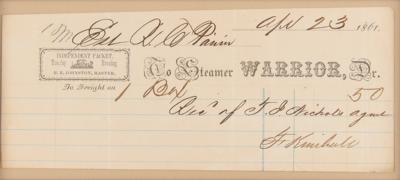 Apr 23 1861.
Est
INDEPENDENT PACKET,
Tuesday Evening
JOHNSTON, MASTER.
To Steamer WARRIOR, Dr.
To Freight on 1 Box 50
Rec'd of T. J. Nichols agent
F Kimball